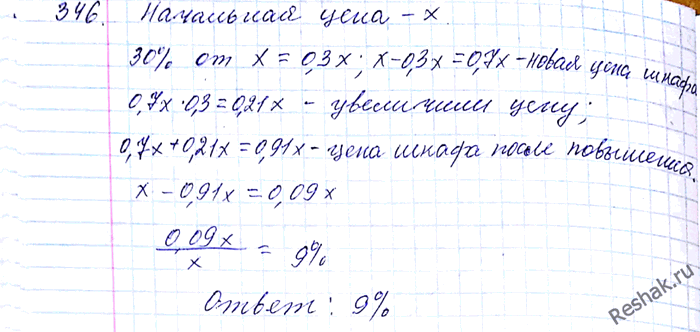 346. Начальная цена – x.
30% от x = 0,3x; x-0,3x=0,7x – новая цена шкафа
0,7x·0,3=0,21x – увеличили цену;
0,7x+0,21x=0,91x – цена шкафа после повышения.
x – 0,91x = 0,09x
0,09x/x = 9%
Ответ: 9%
Reshak.ru